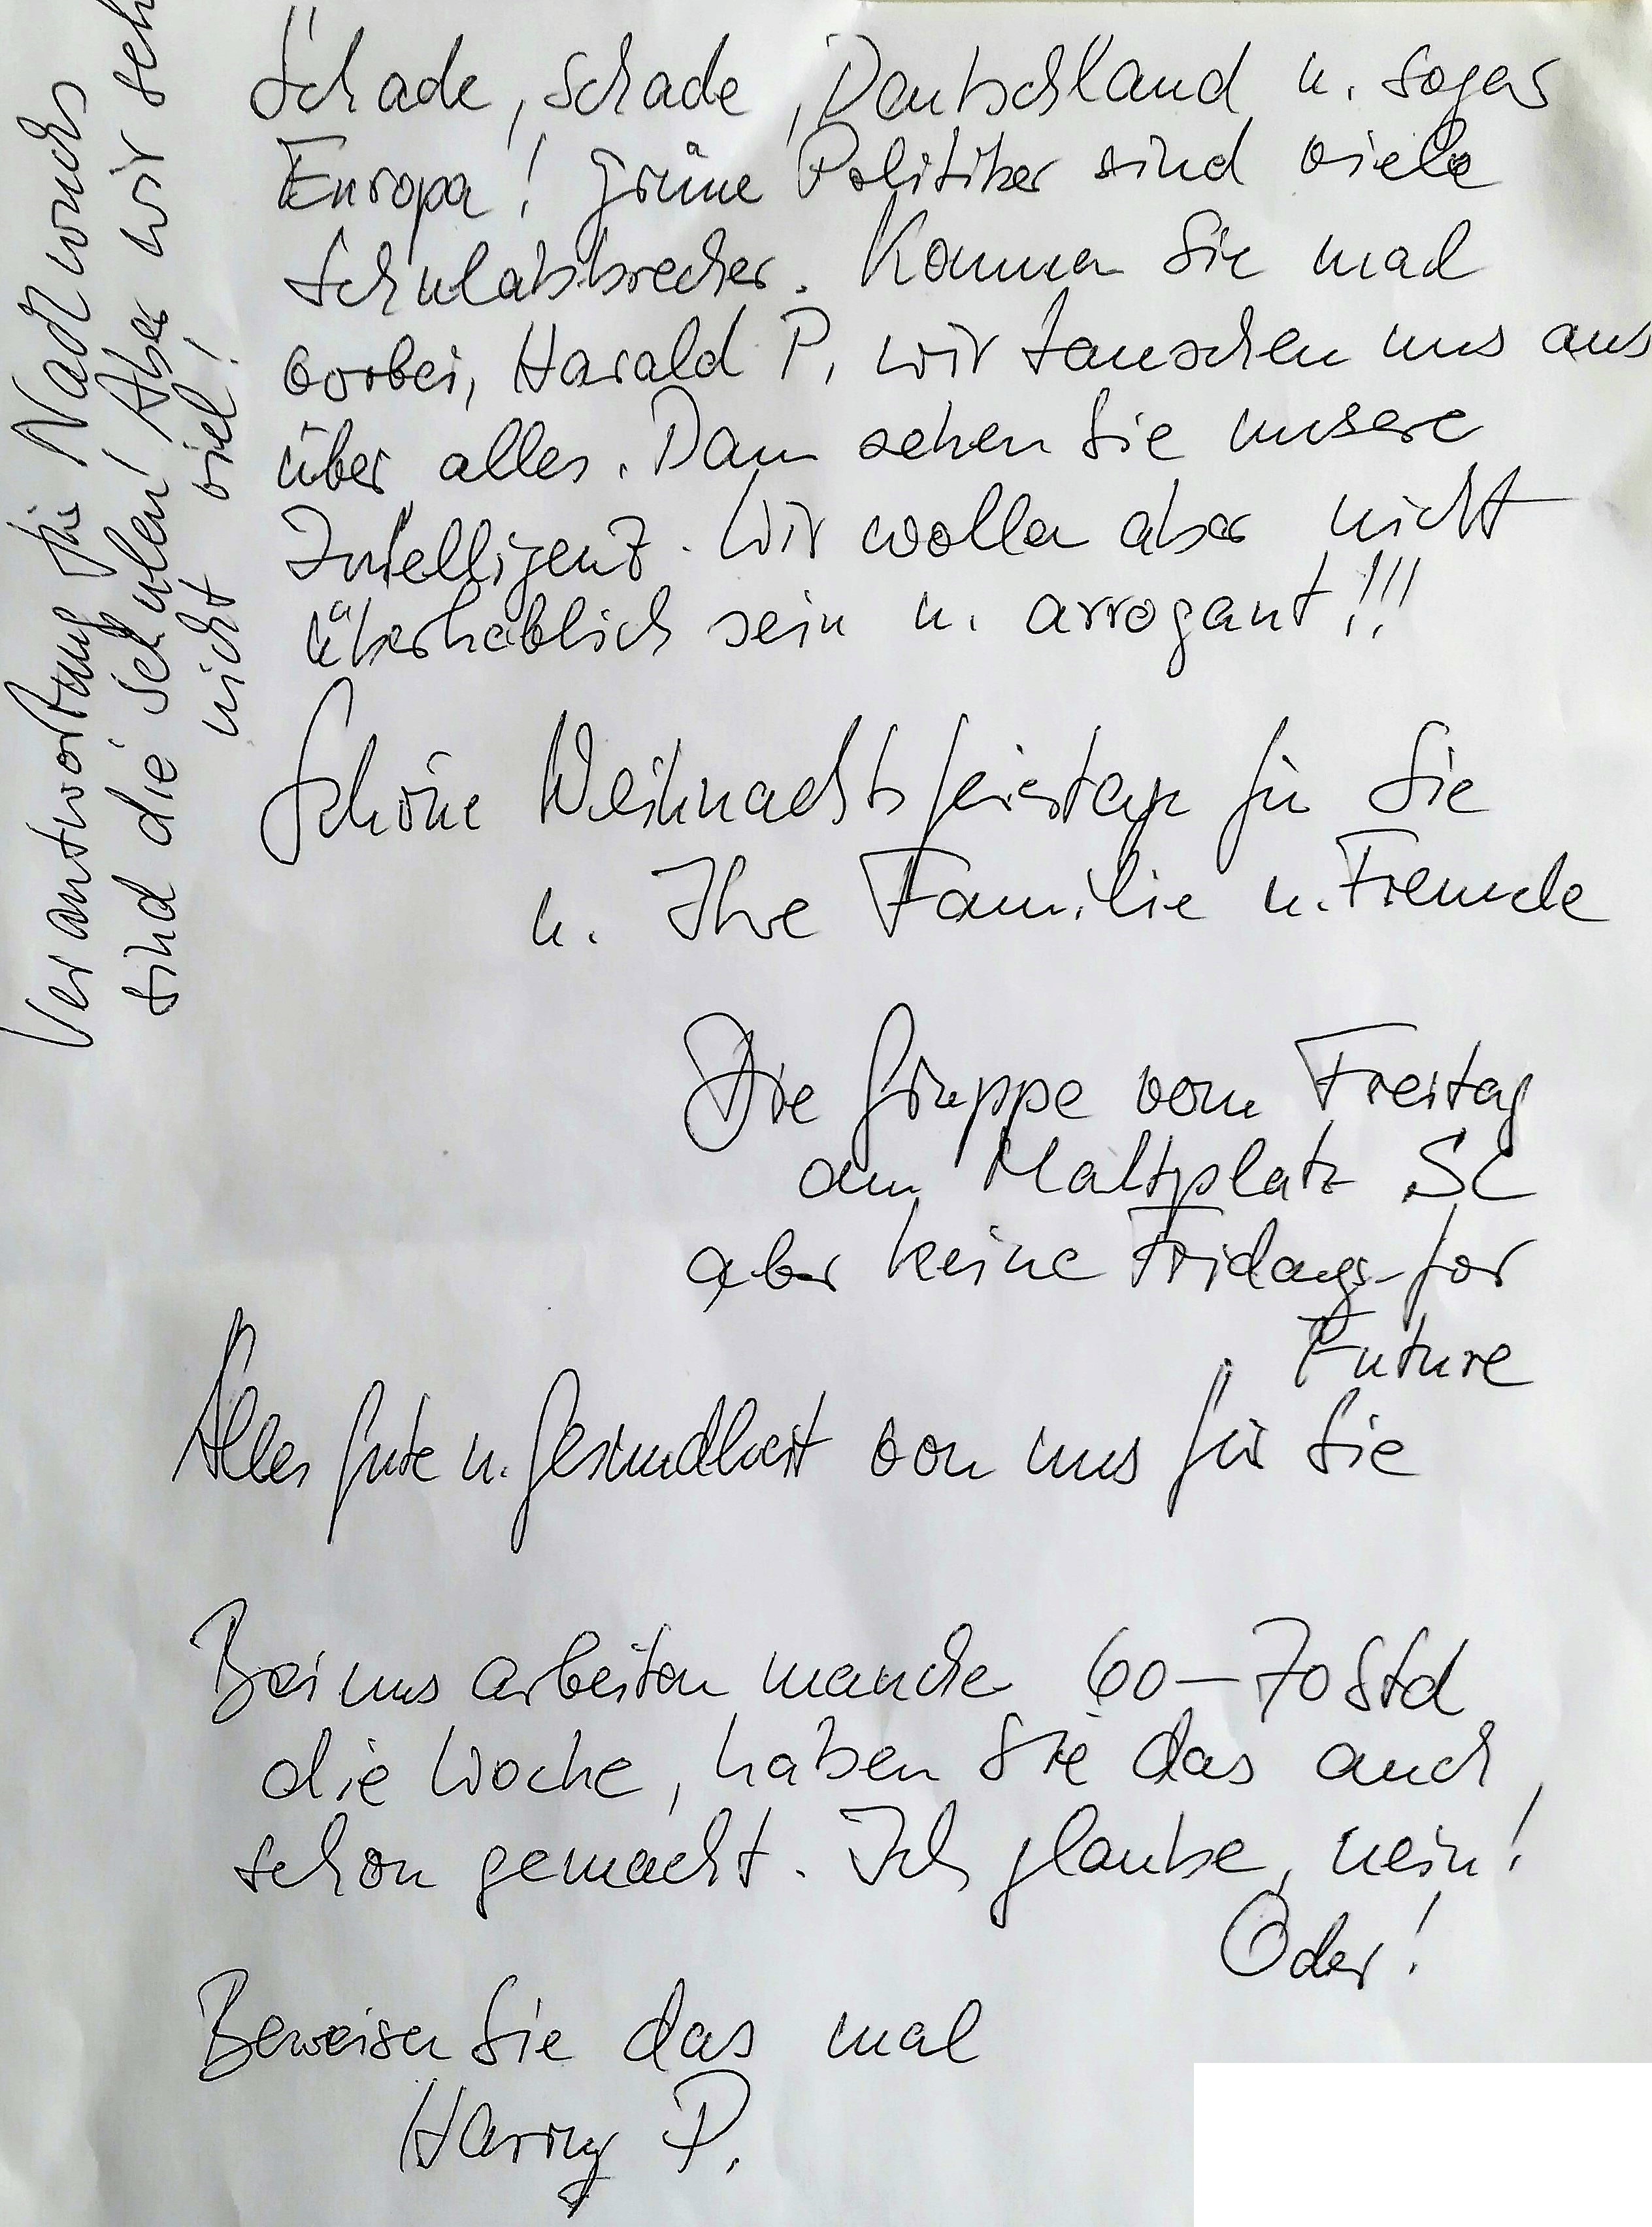 Schade, schade, Deutschland u. sogar
Europa! Grüne Politiker sind viele
Schulabbrecher. Kommen Sie mal
vorbei, Harald P, wir tauschen uns aus
über alles. Dann sehen Sie unsere
Intelligenz. Wir wollen aber nicht
überheblich sein u. arrogant!!!
Schöne Weihnachtsfeiertage für Sie
u. Ihre Familie u. Freunde
Die Gruppe vom Freitag
am Maltplatz SC
aber keine Fridays-for
Future
Alles Gute u. Gesundheit von uns für Sie
Bei uns arbeiten manche 60-70 Std
die Woche, haben Sie das auch
schon gemacht. Ich glaube, nein!
Oder!
Beweisen Sie das mal
Harry P.
Verantwortung für Nachwuchs
sind die Schulen! Aber wir seh
nicht viel!